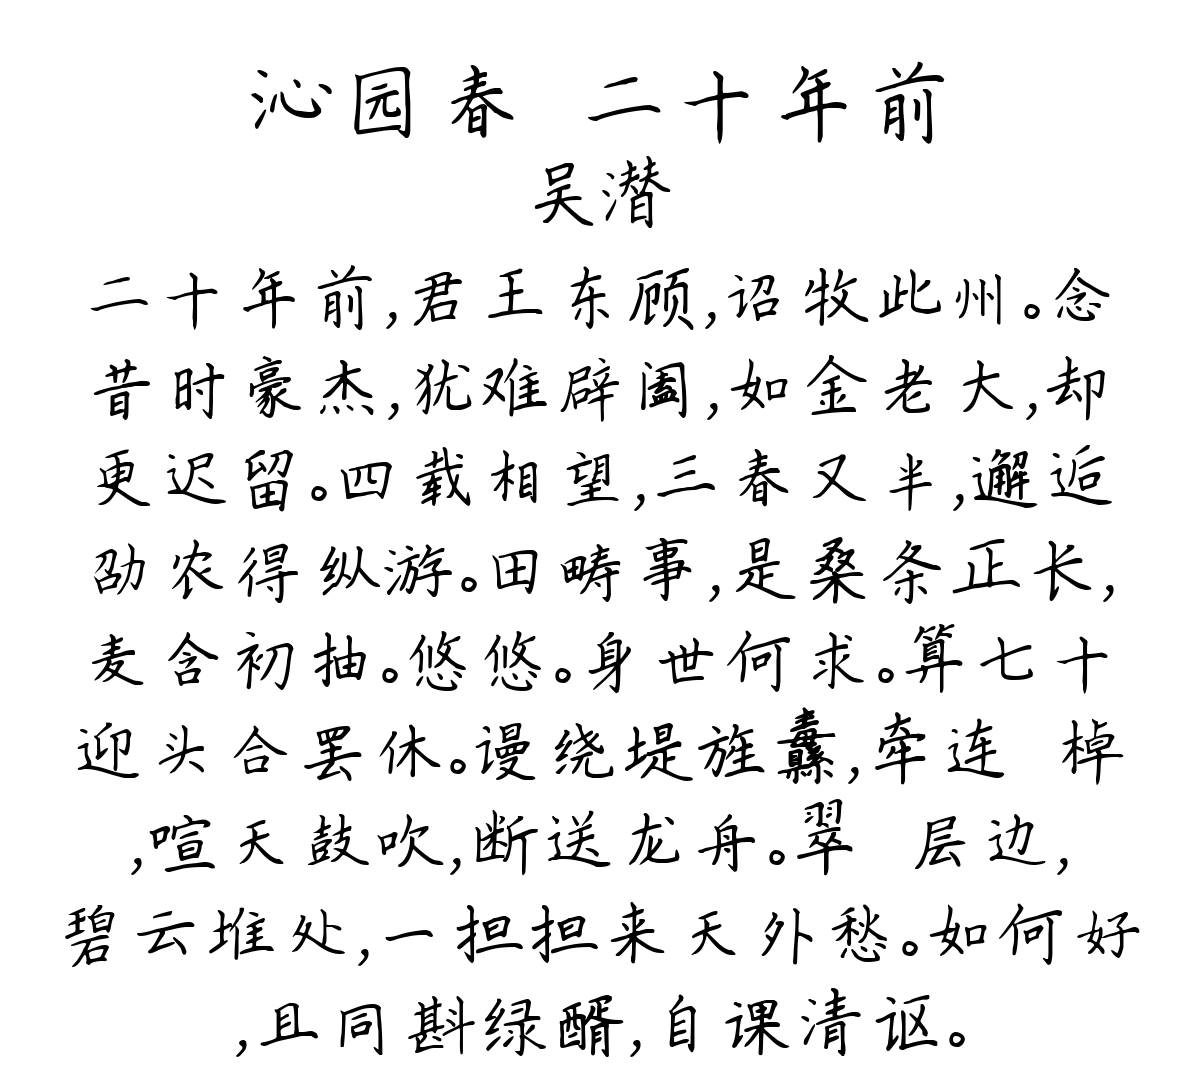 沁园春 二十年前
吴潜
二十年前,君王东顾,诏牧此州。念
昔时豪杰,犹难辟阖,如金老大,却
更迟留。四载相望,三春又半,邂逅
劭农得纵游。田畴事,是桑条正长,
麦含初抽。悠悠。身世何求。算七十
迎头合罢休。谩绕堤旌纛,牵连 棹
,喧天鼓吹,断送龙舟。翠 层边,
碧云堆处,一担担来天外愁。如何好
,且同斟绿醑,自课清讴。